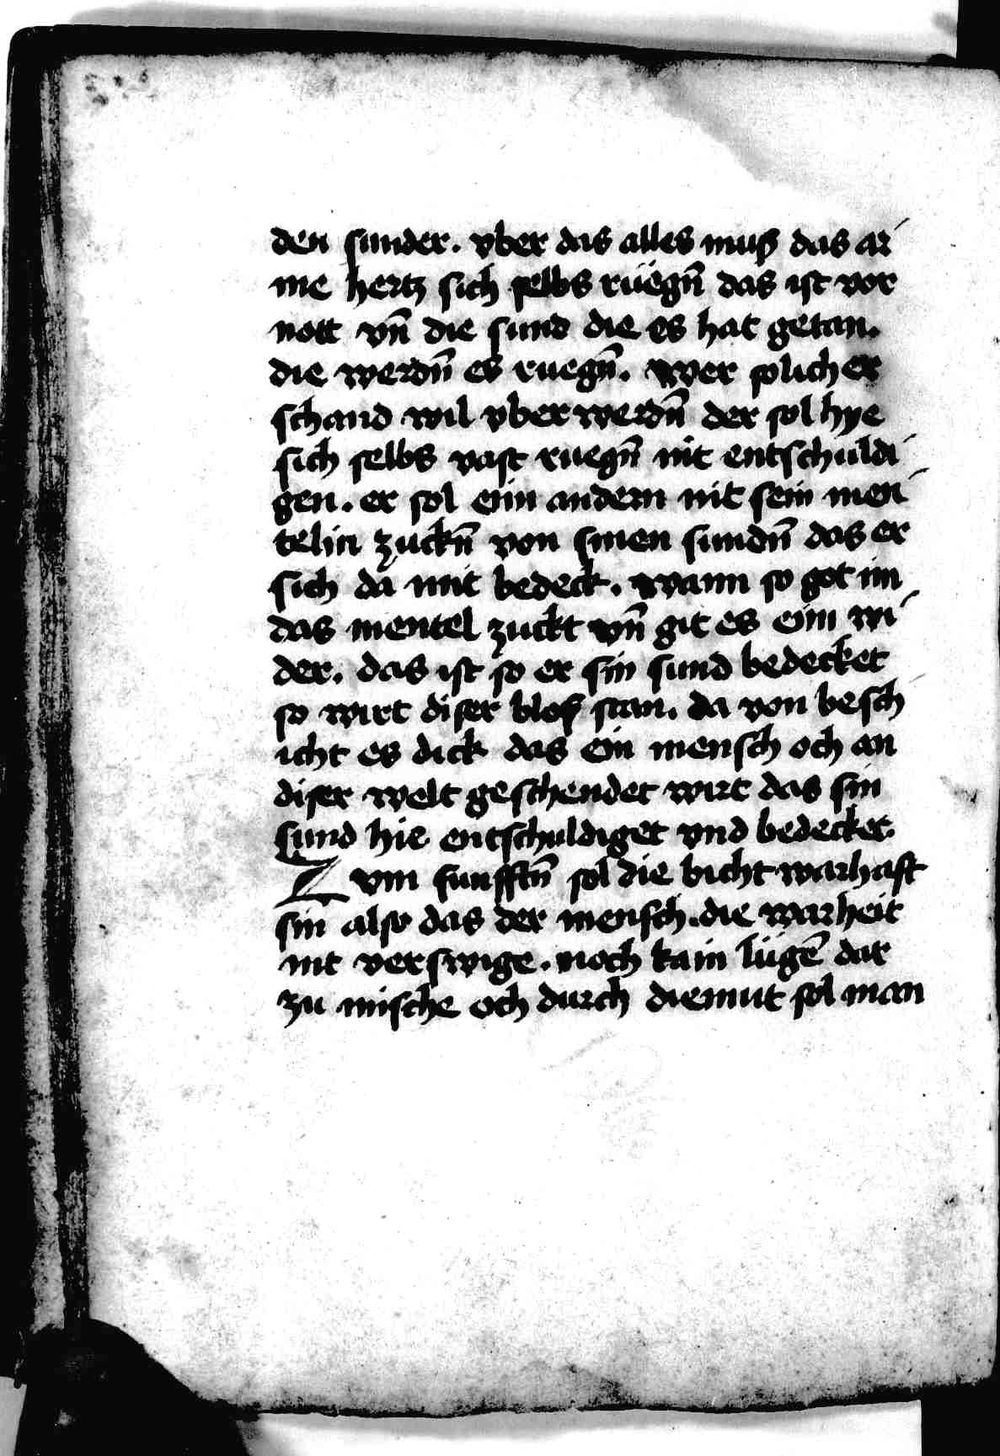 den sunder. vber das alles muß das ar
me hertz sich selbs rüegn̄ das ist vor
nott vn̄ die sund die es hat getan.
die werdn̄ es ruegn̄. wer solicher
schand wil vber werdn̄ der sol hye
sich selbs vast ruegn̄ nit entschuldi
gen. er sol eim andern nit sein men
telin zuckn̄ von sinen sundn̄ das er
sich da mit bedeck. wann so got im
das mentel zuckt vn̄ git es eim wi
der. das ist so er sin sund bedecket
so wirt diser blos stan. da von besch
icht es dick das ein mensch och an
diser welt geschendet wirt das sin
sund hie entschuldiget vnd bedecket.
Zvm funfftn̄ sol die bicht warhaft
sin also das der mensch. die warheit
nit verswige. noch kain lügē dar
zu mische och durch diemut sol man